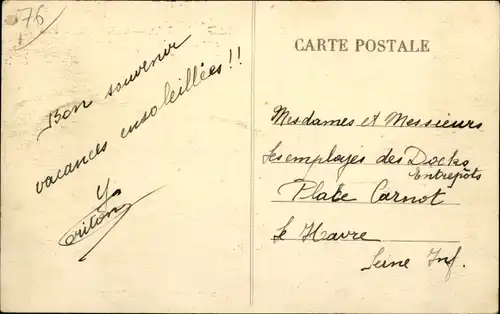 76
Bon souvenir
vacances ensoleillées!!
CARTE POSTALE
Mesdames et Messieurs
les employés des Docks
Entrepôts
Place Carnot
Le Havre
Seine Inf.